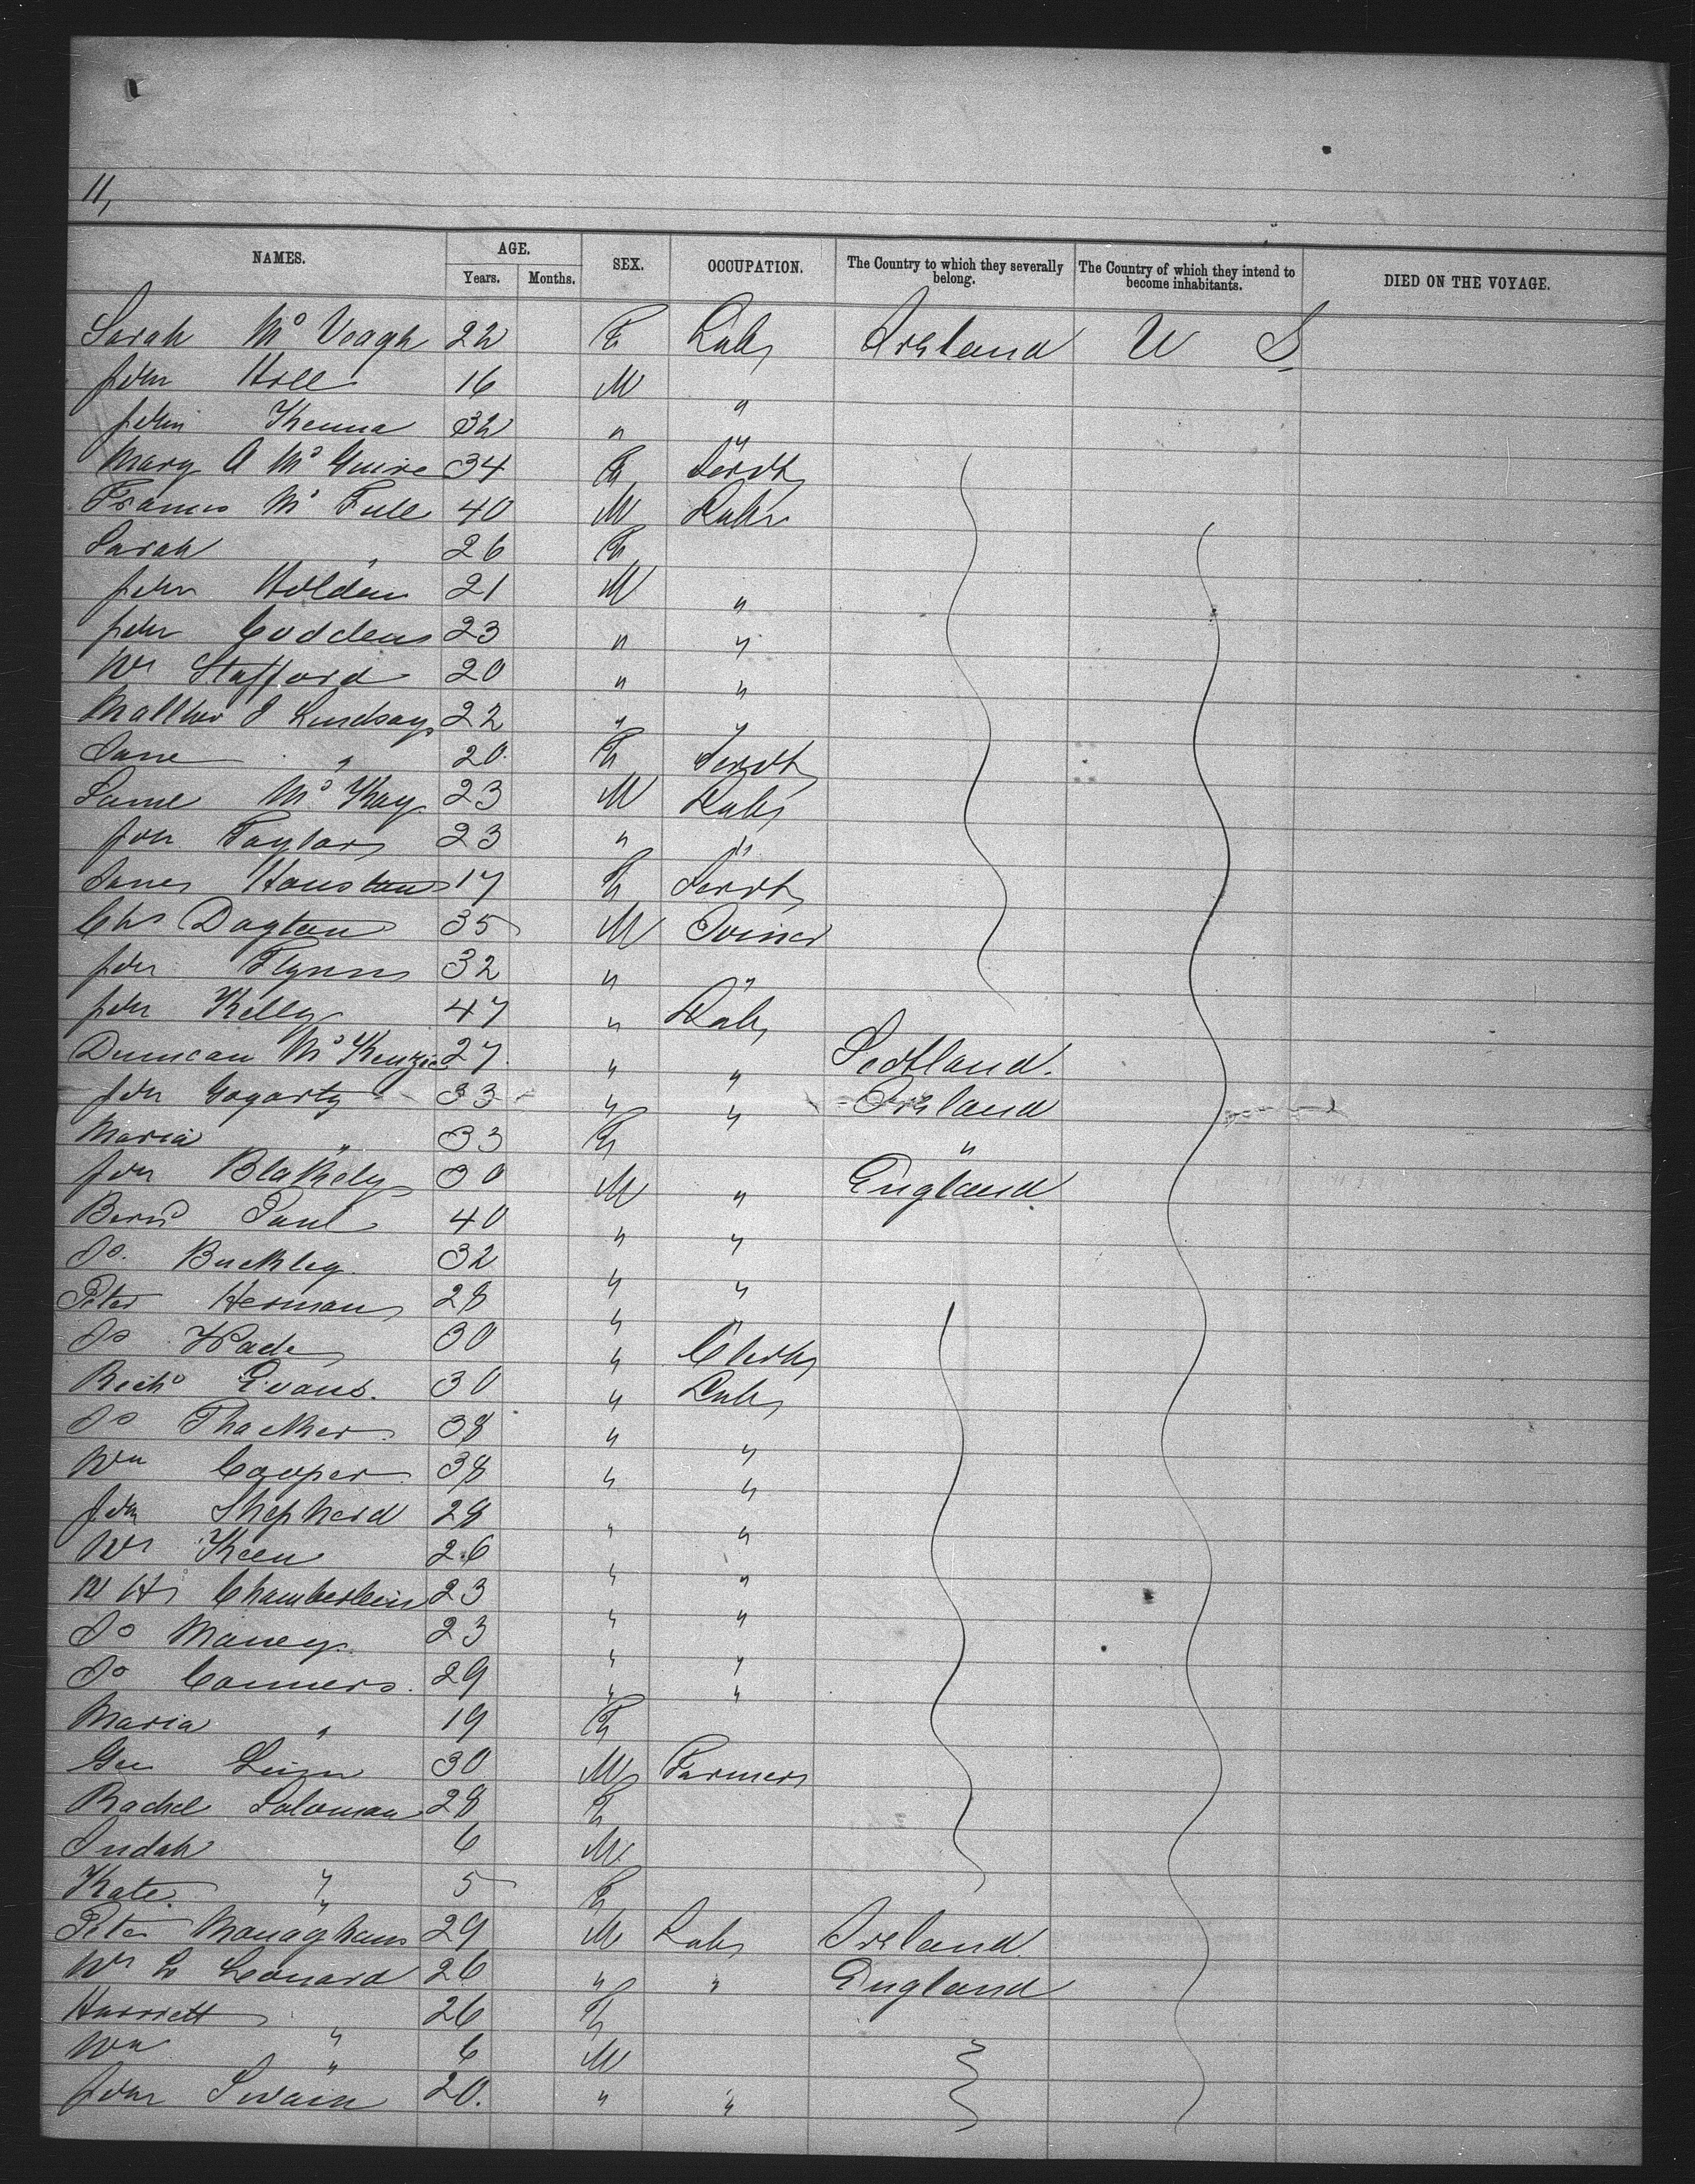 11,
NAMES. AGE. SEX. OCCUPATION. The Country to which they severally belong. The Country of which they intend to become inhabitants. DIED ON THE VOYAGE.
Years. Months.
Sarah Mc Veagh 22 F Lab Ireland U S
John Hill 16 M "
John Kenna 32 " "
Mary A Mc Guire 34 F Servt
Francis Mc Full 40 M Labr
Sarah " 26 F
John Holden 21 M "
John Coddens 23 " "
Wm Stafford 20 " "
Matthew J Lindsay 22 " "
Jane " 20 F Servt
Saml Mc Kay 23 M Lab
Jon Taylor 23 " "
Jane Houstan 17 F Servt
Chs Dayton 35 M Joiner
John Flynn 32 " "
John Kelly 47 " Lab
Duncan Mc Kenzie 27 " " Scotland.
John Gogarty 33 " " Ireland
Maria " 33 F "
Jon Blakely 30 M " England
Bernd Paul 40 " "
Js. Buckley 32 " "
Peter Herman 28 " "
Js Wade 30 " Clerk
Richd Evans. 30 " Lab
Js Thacker 38 " "
Wm Cooper 38 " "
John Shepherd 28 " "
Wm Keen 26 " "
W H Chamberlein 23 " "
Js Maney 23 " "
Js Conners 29 " "
Maria " 19 F
Geo 30 M Farmer
Rachel Soloman 28 F
Judah 6 M
Kate " 5 F
Peter Monaghan 29 M Lab Ireland
Wm L Leonard 26 " " England
Harriett " 26 F
Wm " 6 M
John Swain 20. " "